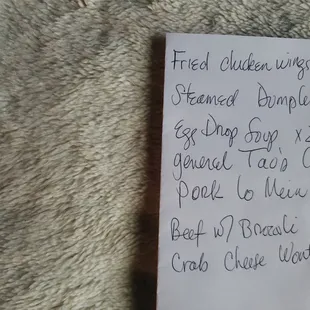 Fried chicken wings
Steamed Dumple
Egg Drop Soup x2
general Tao's C
pork lo Mein
Beef w/ Brocoli
Crab Cheese Wont